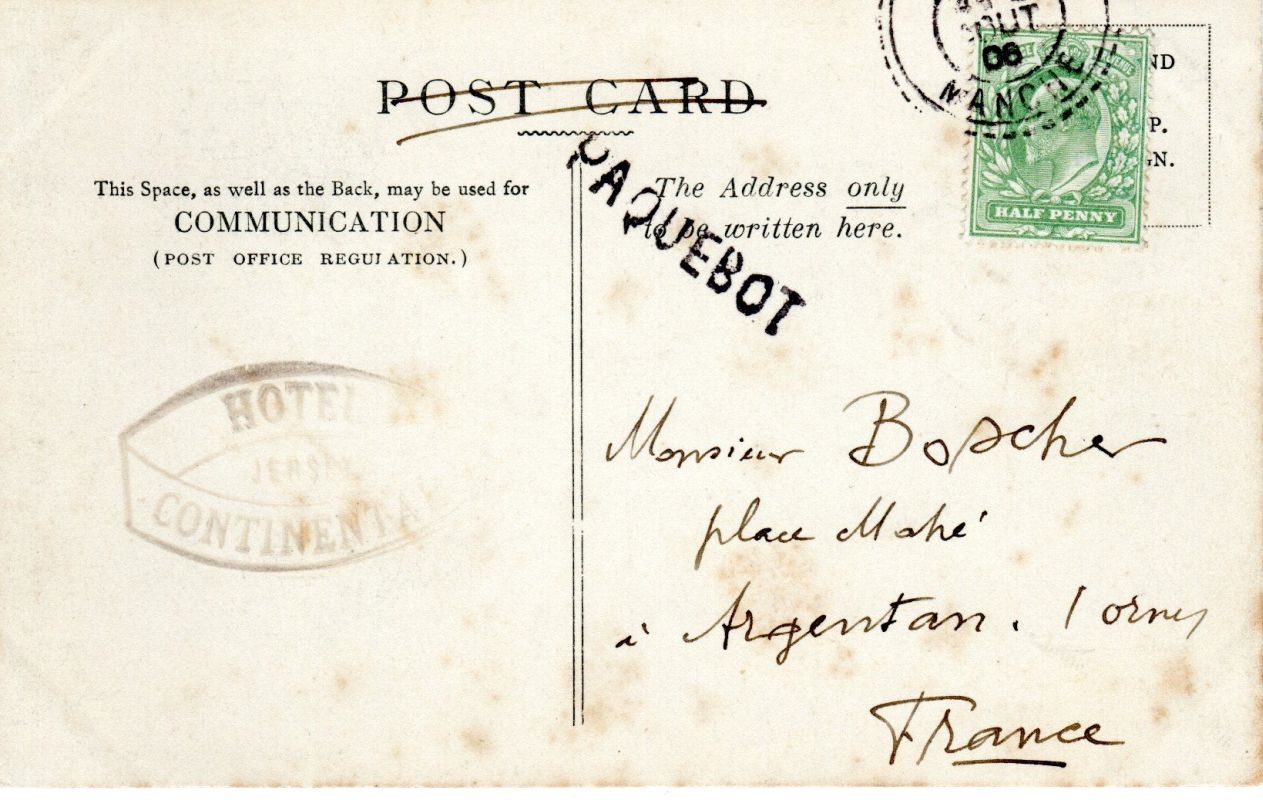 POST CARD
This Space, as well as the Back, may be used for
COMMUNICATION
(POST OFFICE REGULATION.)
The Address only
to be written here.
PAQUEBOT
OUT
06
MANCHE
ND
P.
GN.
HALF PENNY
HOTEL
JERSEY
CONTINENTAL
Monsieur Boscher
place Mahé
à Argentan. (orne)
France